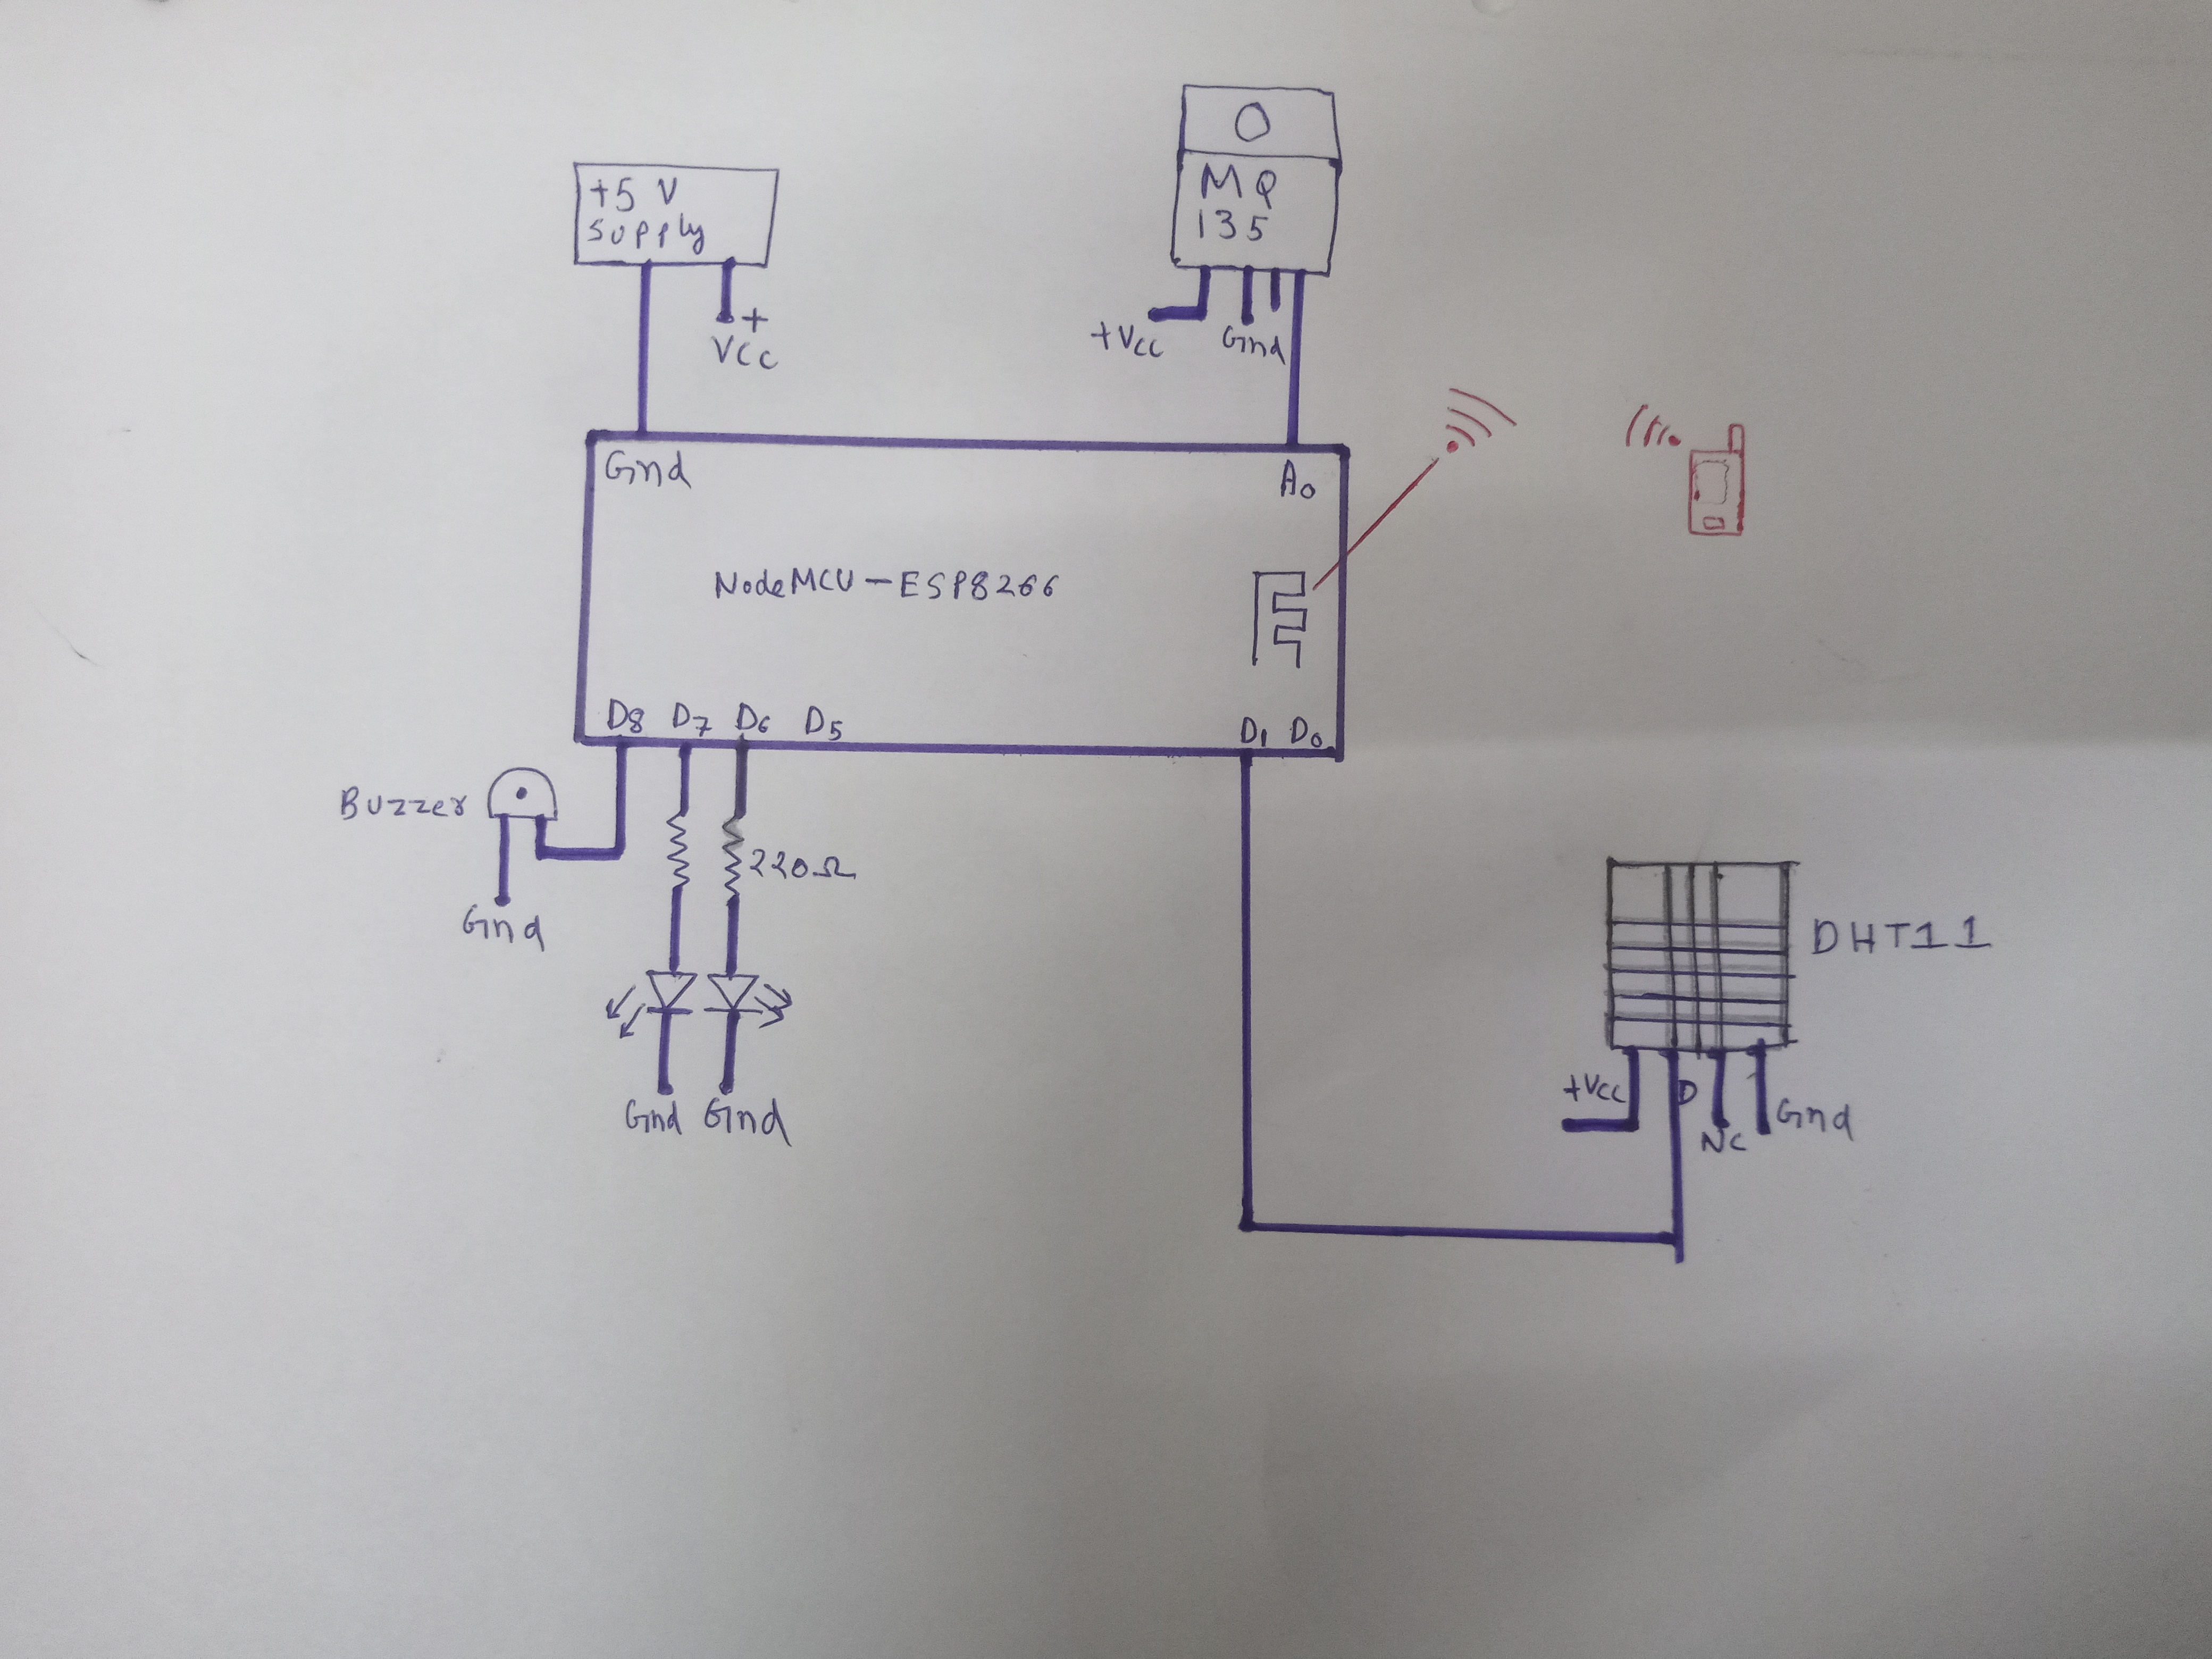 +5 V
supply
+
Vcc
MQ
135
+Vcc
Gnd
Gnd
A0
NodeMCU-ESP8266
D8 D7 D6 D5
D1 D0
Buzzer
220Ω
Gnd
Gnd Gnd
DHT11
+Vcc
D
NC
Gnd